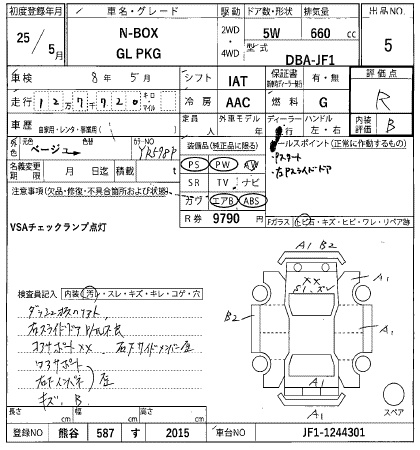 初度登録年月 車名・グレード 駆動 ドア数・形状 排気量 出品NO.
25年 5月 N-BOX GL PKG 2WD・4WD 5W 660cc 5
型式 DBA-JF1
車検 8年 5月 シフト IAT 保証書 有・無 評価点
走行 127720 キロ・マイル 冷房 AAC 燃料 G R
車歴 自家用・レンタ・事業用( ) 定員 人 外車モデル 年 ディーラー ハンドル 左・右 内装評価 B
外色 元色 ベージュ 色替 カラーNO YR578P
装備品(純正品に限る) セールスポイント(正常に作動するもの)
PS PW AW ・Pスタート
・右Pスライドドア
名義変更期限 月 日 積載 t
SR TV ナビ
注意事項(欠品・修復・不具合箇所および状態) カワ エアB ABS
R券 9790円 Fガラス トビ石・キズ・ヒビ・ワレ・リペア跡
VSAチェックランプ点灯
A1 B2
検査員記入 内装(汚・スレ・キズ・キレ・コゲ・穴 XX A1
B2
右スライドドア
コアサポートXX 右Fサイドメンバー
キズ、B
A1
A1
A1
スペア
長さ cm 幅 cm 高さ cm
登録NO 熊谷 587 す 2015 車台NO JF1-1244301